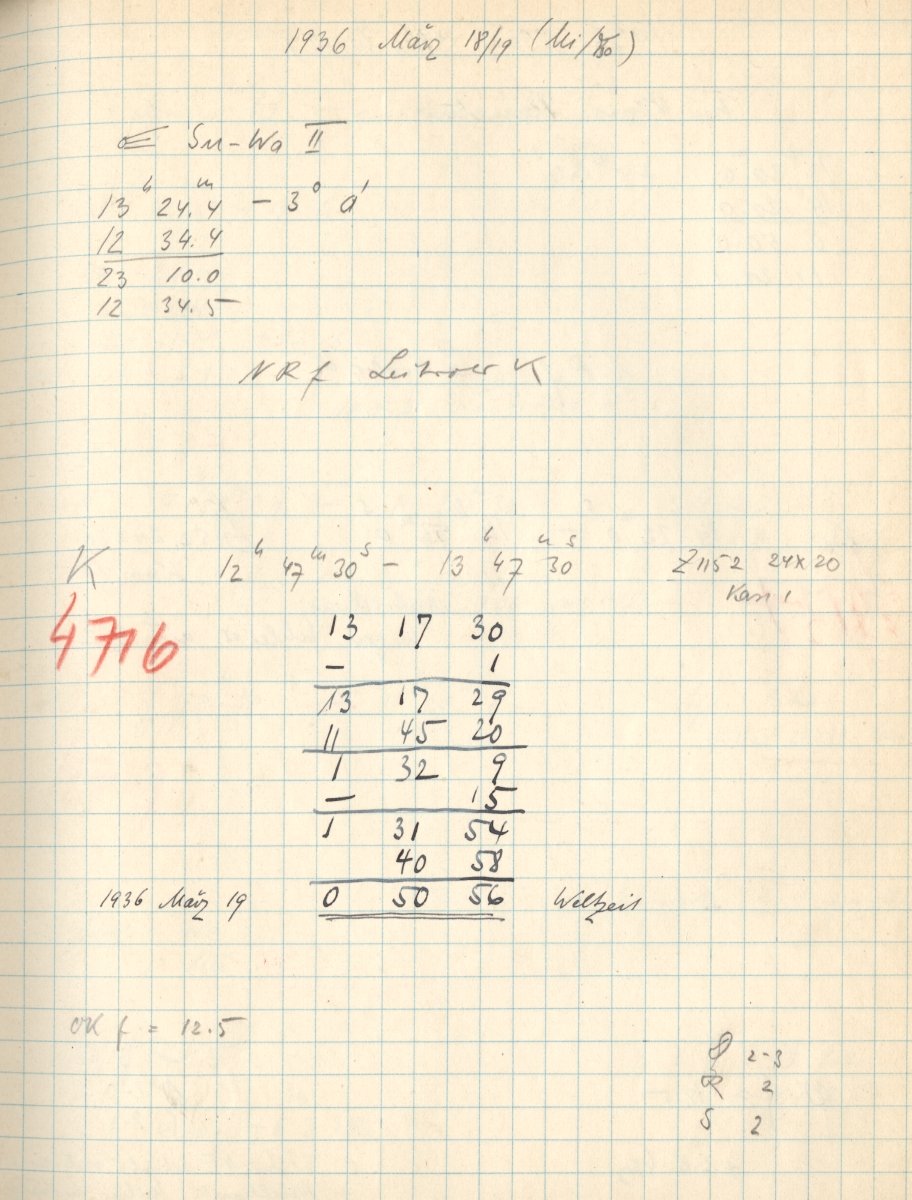 1936 März 18/19 (Mi/Do)
Su-Wa II
13h 24.m4 - 3° 0'
12 34.4
23 10.0
12 34.5
NRf K
K 12h 47m 30s - 13h 47m 30s Z1152 24x20
Kass 1
4716
13 17 30
- 1
13 17 29
11 45 20
1 32 9
- 15
1 31 54
40 58
1936 März 19 0 50 56 Weltzeit
OK f = 12.5
2-3
R 2
S 2